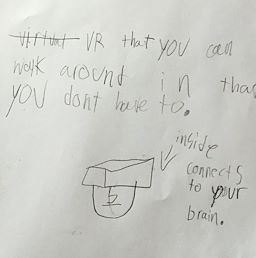 virtual VR that you can
walk around in that
you dont have to.
inside
connects
to your
brain.